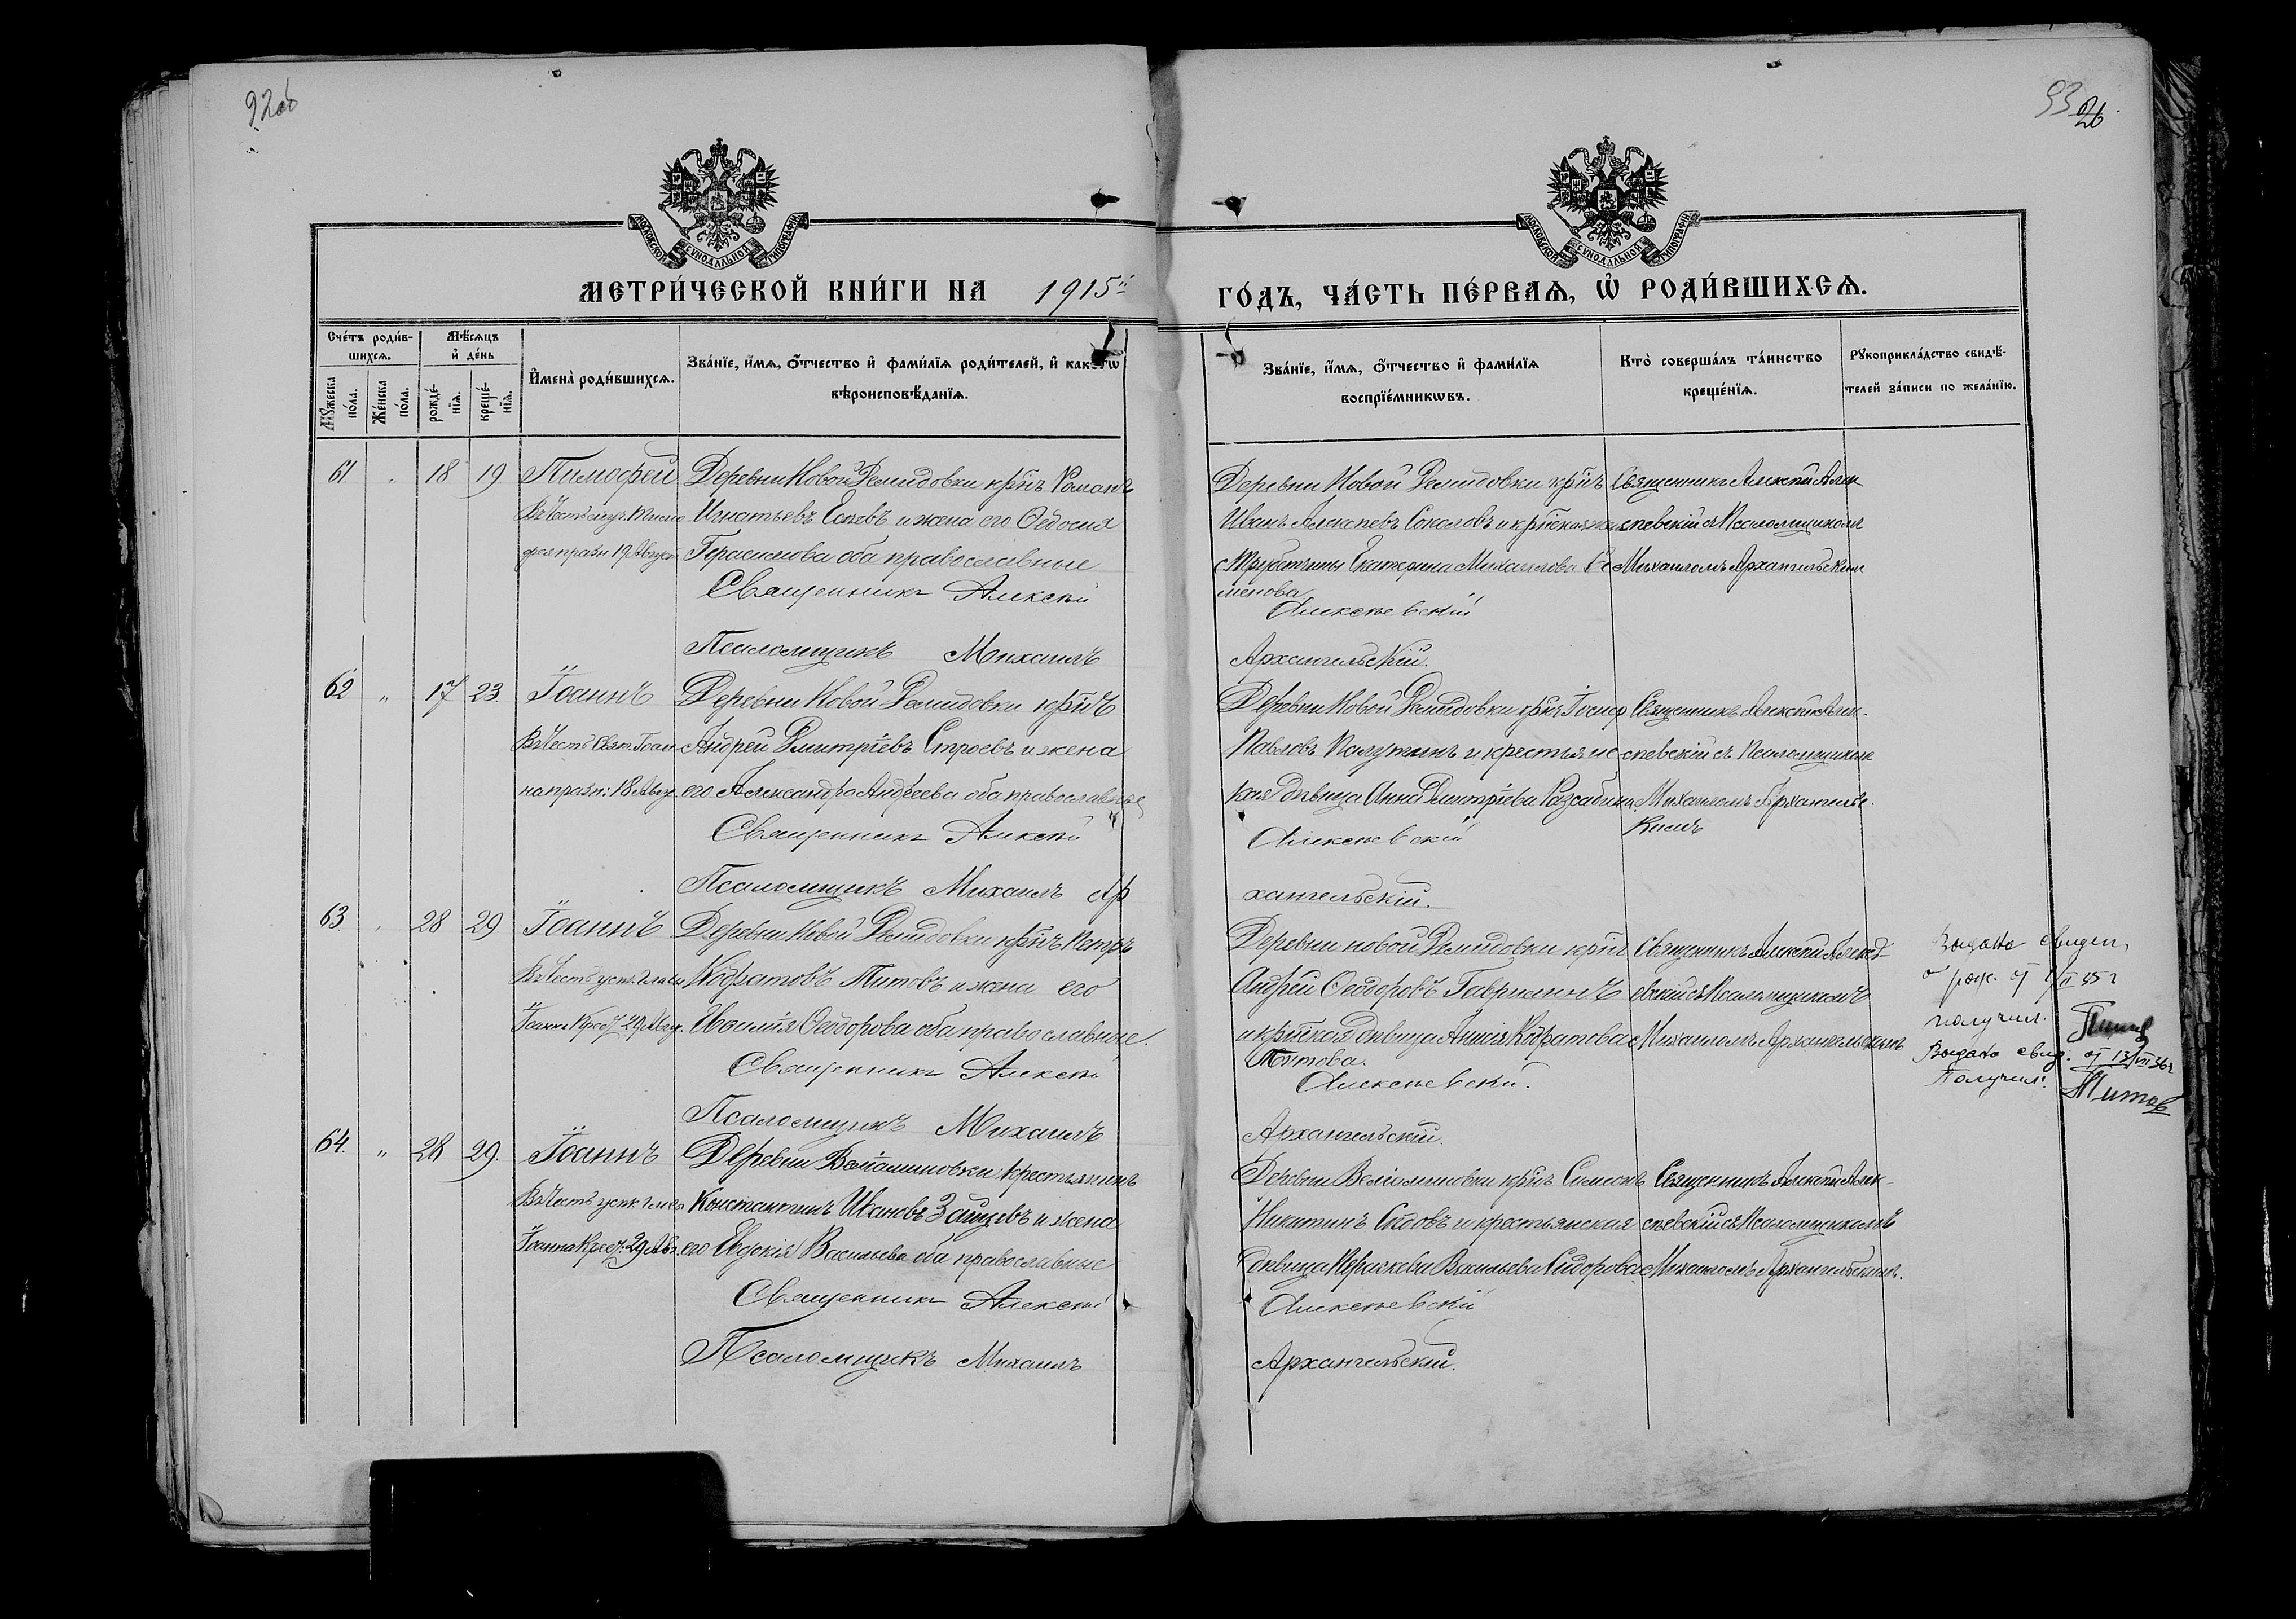 92об
93
26
МОСКОВСКОЙ СѴНОДАЛЬНОЙ ТИПОГРАФІИ
МОСКОВСКОЙ СѴНОДАЛЬНОЙ ТИПОГРАФІИ
МЕТРИ́ЧЕСКОЙ КНИ́ГИ НА 1915й
ГО́ДЪ, ЧА́СТЬ ПЕ́РВАѦ, Ѡ҆ РОДИ́ВШИХСѦ.
Сче́тъ роди́в-
шихсѧ.
Мѣ́сѧцъ
и҆ де́нь
Мꙋ́жеска
по́ла.
Же́нска
по́ла.
рожде́-
нїѧ.
креще́-
нїѧ.
И҆мена̀ роди́вшихсѧ.
Зва́нїе, и҆́мѧ, ѻ҆́тчество и҆ фами́лїѧ роди́телей, и҆ како́гѡ
вѣроисповѣ́данїѧ.
Зва́нїе, и҆́мѧ, ѻ҆́тчество и҆ фами́лїѧ
воспрїе́мникѡвъ.
Кто̀ соверша́лъ та́инство
креще́нїѧ.
Рꙋкоприкла́дство свидѣ́-
телей за́писи по жела́нїю.
61 " 18 19 Тимофей
Въ честь муч. Тимо
фея праздн 19 Август
Деревни Новой Демидовки кр̃нъ Романъ
Игнатьевъ Есевъ и жена его Ѳедосия
Герасимова оба православные
Священникъ Алексѣй
Псаломщикъ Михаилъ
Деревни Новой Демидовки кр̃нъ
Иванъ Алексѣевъ Соколовъ и
Екатерина Михайлова Се
менова
Алексѣевскій
Архангельскій.
Священникъ Алексѣй Алек
сѣевскій съ Псаломщикомъ
Михаиломъ Архангельским
62 " 17 23 Іоаннъ
Въ честь Свят. Іоан
на праздн: 18 Авг.
Деревни Новой Демидовки кр̃нъ
Андрей Дмитріевъ Строевъ и жена
его Александра Андреева оба православные
Священникъ Алексѣй
Псаломщикъ Михаилъ Ар
Деревни Новой Демидовки кр̃нъ Іосиф
Павловъ и крестьянс
кая дѣвица Анна Дмитріева
Алексѣевскій
хангельскій.
Священникъ Алексѣй Алек-
сѣевскій съ Псаломщиком
Михаиломъ Архангельс-
кимъ
63 " 28 29 Іоаннъ
Въ честь усѣк. главы
Іоанна Крес. 29 Авг.
Деревни Новой Демидовки кр̃нъ Петръ
Кодратовъ Титовъ и жена его
Ѳеодорова оба православные.
Священникъ Алексѣй
Псаломщикъ Михаилъ
Деревни новой Демидовки кр̃нъ
Андрей Ѳеодоровъ Гавриловъ
и кр̃нская дѣвица Анисія Кодратова
Титова.
Алексѣевскій.
Архангельскій.
Священникъ Алексѣй Алексѣ-
евский съ Псаломщикомъ
Михаиломъ Архангельскимъ
Выдано свидет.
о рож.
получил.
Выдано свид. от 13/VII 36 г
Получил. Титов
64. " 28 29. Іоаннъ
Въ честь усѣк. главы
Іоанна Крес. 29 Авг.
Деревни Веніаминовки крестьянинъ
Константинъ Ивановъ Зайцевъ и жена
его Евдокія Васильева оба православные
Священникъ Алексѣй
Псаломщикъ Михаилъ
Деревни Веніаминовки кр̃нъ Симеонъ
Никитинъ и крестьянская
дѣвица Васильева Сидорова
Алексѣевскій
Архангельскій.
Священникъ Алексѣй Алек-
сѣевскій съ Псаломщикомъ
Михаиломъ Архангельскимъ.